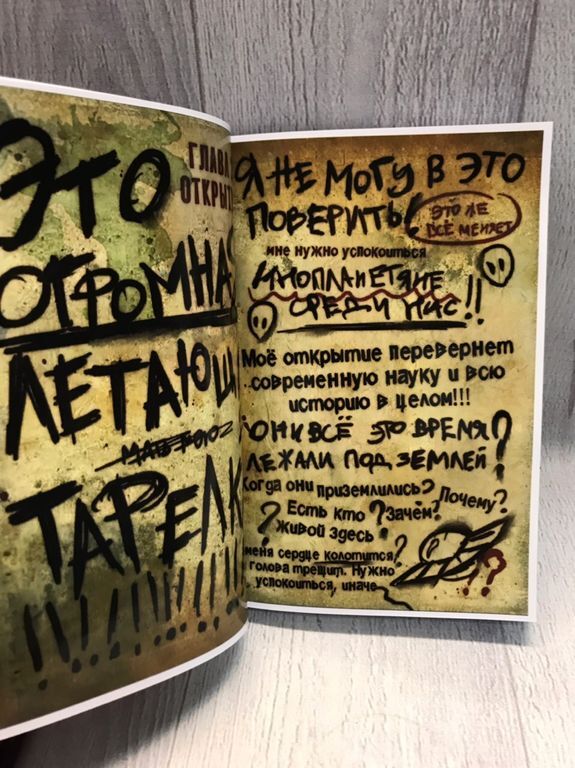 ГЛАВА
ЭТО
ОГРОМНА
ЛЕТАЮЩ
ТАРЕЛК
!!!!!!!!!!
Я НЕ МОГУ В ЭТО
ПОВЕРИТЬ!
ЭТО ЖЕ
ВСЁ МЕНЯЕТ
мне нужно успокоиться
ИНОПЛАНЕТЯНЕ
СРЕДИ НАС!!
Моё открытие перевернет
современную науку и всю
историю в целом!!!
ОНИ ВСЁ ЭТО ВРЕМЯ
ЛЕЖАЛИ ПОД ЗЕМЛЕЙ?
Когда они приземлились?
Почему?
Есть кто
живой здесь?
Зачем?
?
меня сердце колотится,
голова трещит. Нужно
успокоиться, иначе
??